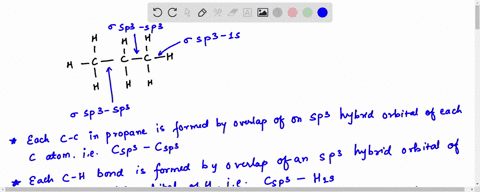 σ sp3-sp3
H H H σ sp3-1s
H - C - C - C - H
H H H
σ sp3-sp3
* Each C-C in propane is formed by overlap of on sp3 hybrid orbital of each
C atom. i.e. Csp3 - Csp3
* Each C-H bond is formed by overlap of an sp3 hybrid orbital of
i.e. Csp3 - H1s